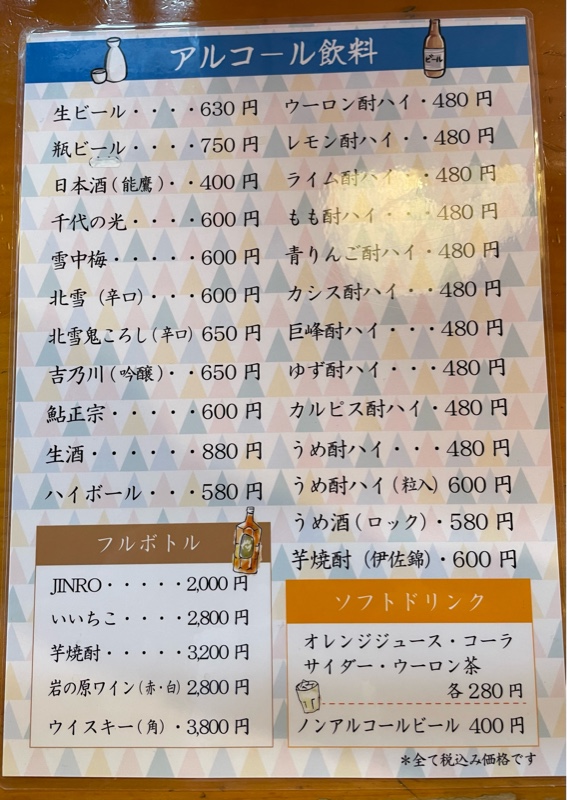 アルコール飲料
ビール
生ビール・・・・630 円
瓶ビール・・・・750 円
日本酒（能鷹）・・400 円
千代の光・・・・600 円
雪中梅・・・・・600 円
北雪（辛口）・・・600 円
北雪鬼ころし（辛口）650 円
吉乃川（吟醸）・・650 円
鮎正宗・・・・・600 円
生酒・・・・・・880 円
ハイボール・・・580 円
ウーロン酎ハイ・480 円
レモン酎ハイ・・480 円
ライム酎ハイ・・480 円
もも酎ハイ・・・480 円
青りんご酎ハイ・480 円
カシス酎ハイ・・480 円
巨峰酎ハイ・・・480 円
ゆず酎ハイ・・・480 円
カルピス酎ハイ・480 円
うめ酎ハイ・・・480 円
うめ酎ハイ（粒入）600 円
うめ酒（ロック）・580 円
芋焼酎（伊佐錦）・600 円
フルボトル
JINRO・・・・・2,000 円
いいちこ・・・・2,800 円
芋焼酎・・・・・3,200 円
岩の原ワイン（赤・白）2,800 円
ウイスキー（角）・3,800 円
ソフトドリンク
オレンジジュース・コーラ
サイダー・ウーロン茶
各 280 円
ノンアルコールビール 400 円
＊全て税込み価格です